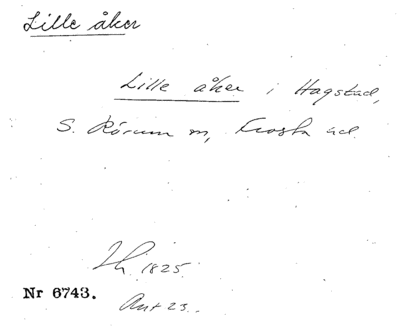 Lille åker
Lille åker i Hagstad,
S. Rörum sn, Frosta hd.
1825
Nr 6743.
Ant 23.